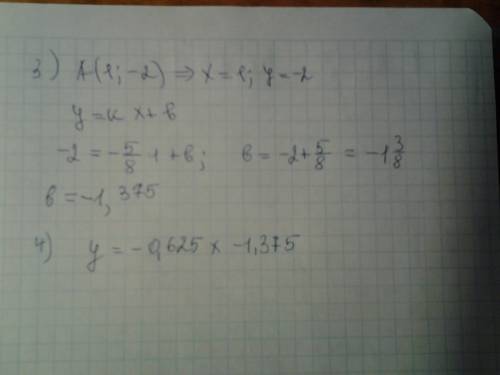 3) A(1; -2) ⇒ x = 1; y = -2
y = кx + в
-2 = -5/8 · 1 + в; в = -2 + 5/8 = -1 3/8
в = -1,375
4) y = -0,625x - 1,375